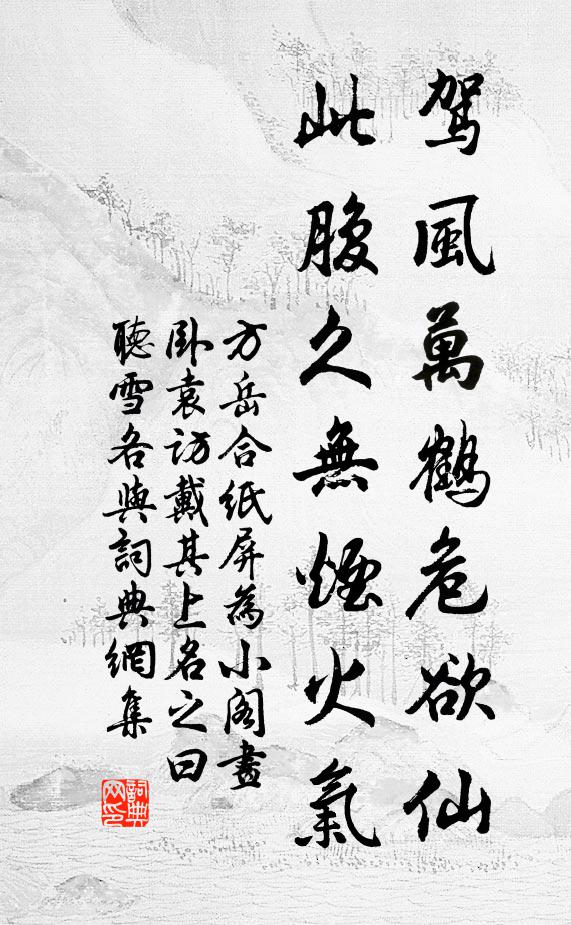 駕風萬鶴危欲仙
此腹久無煙火氣
方岳合紙屏為小閣畫
臥袁訪戴其上名之曰
聽雪各與詞典網集
詞典
网印